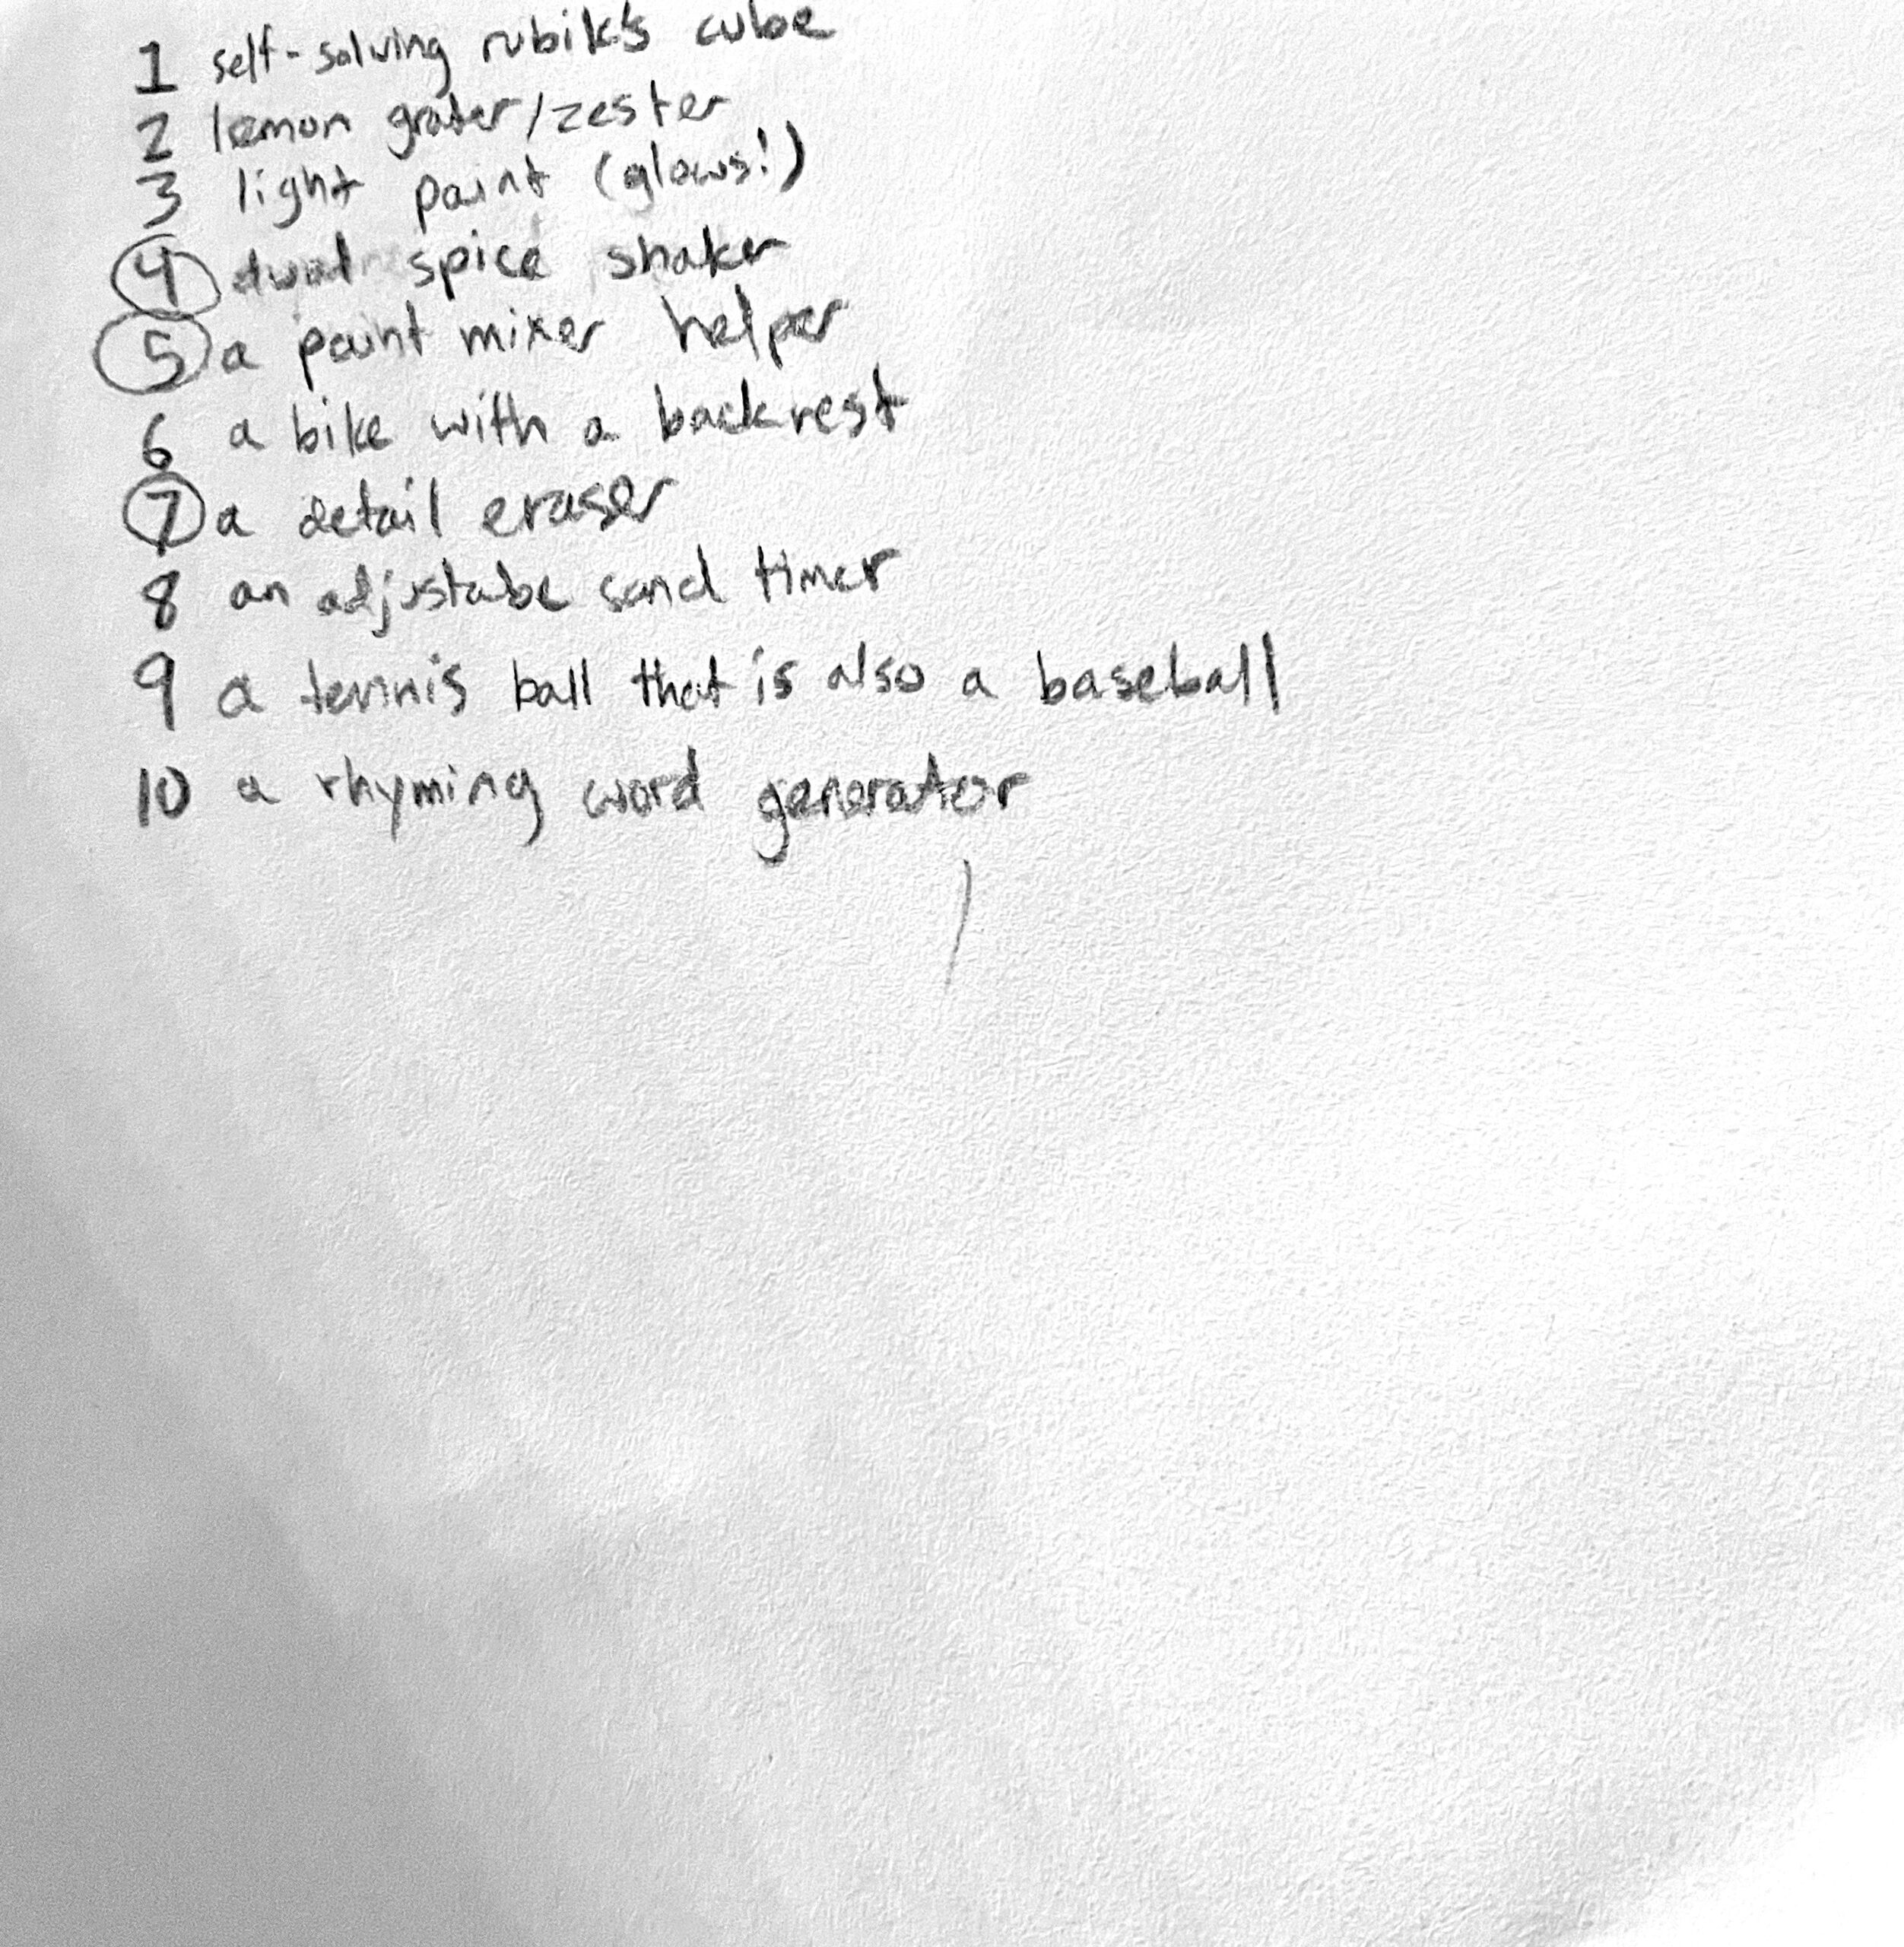 1 self-solving rubik's cube
2 lemon grater/zester
3 light paint (glows!)
4 dual spice shaker
5 a paint mixer helper
6 a bike with a backrest
7 a detail eraser
8 an adjustabe sand timer
9 a tennis ball that is also a baseball
10 a rhyming word generator